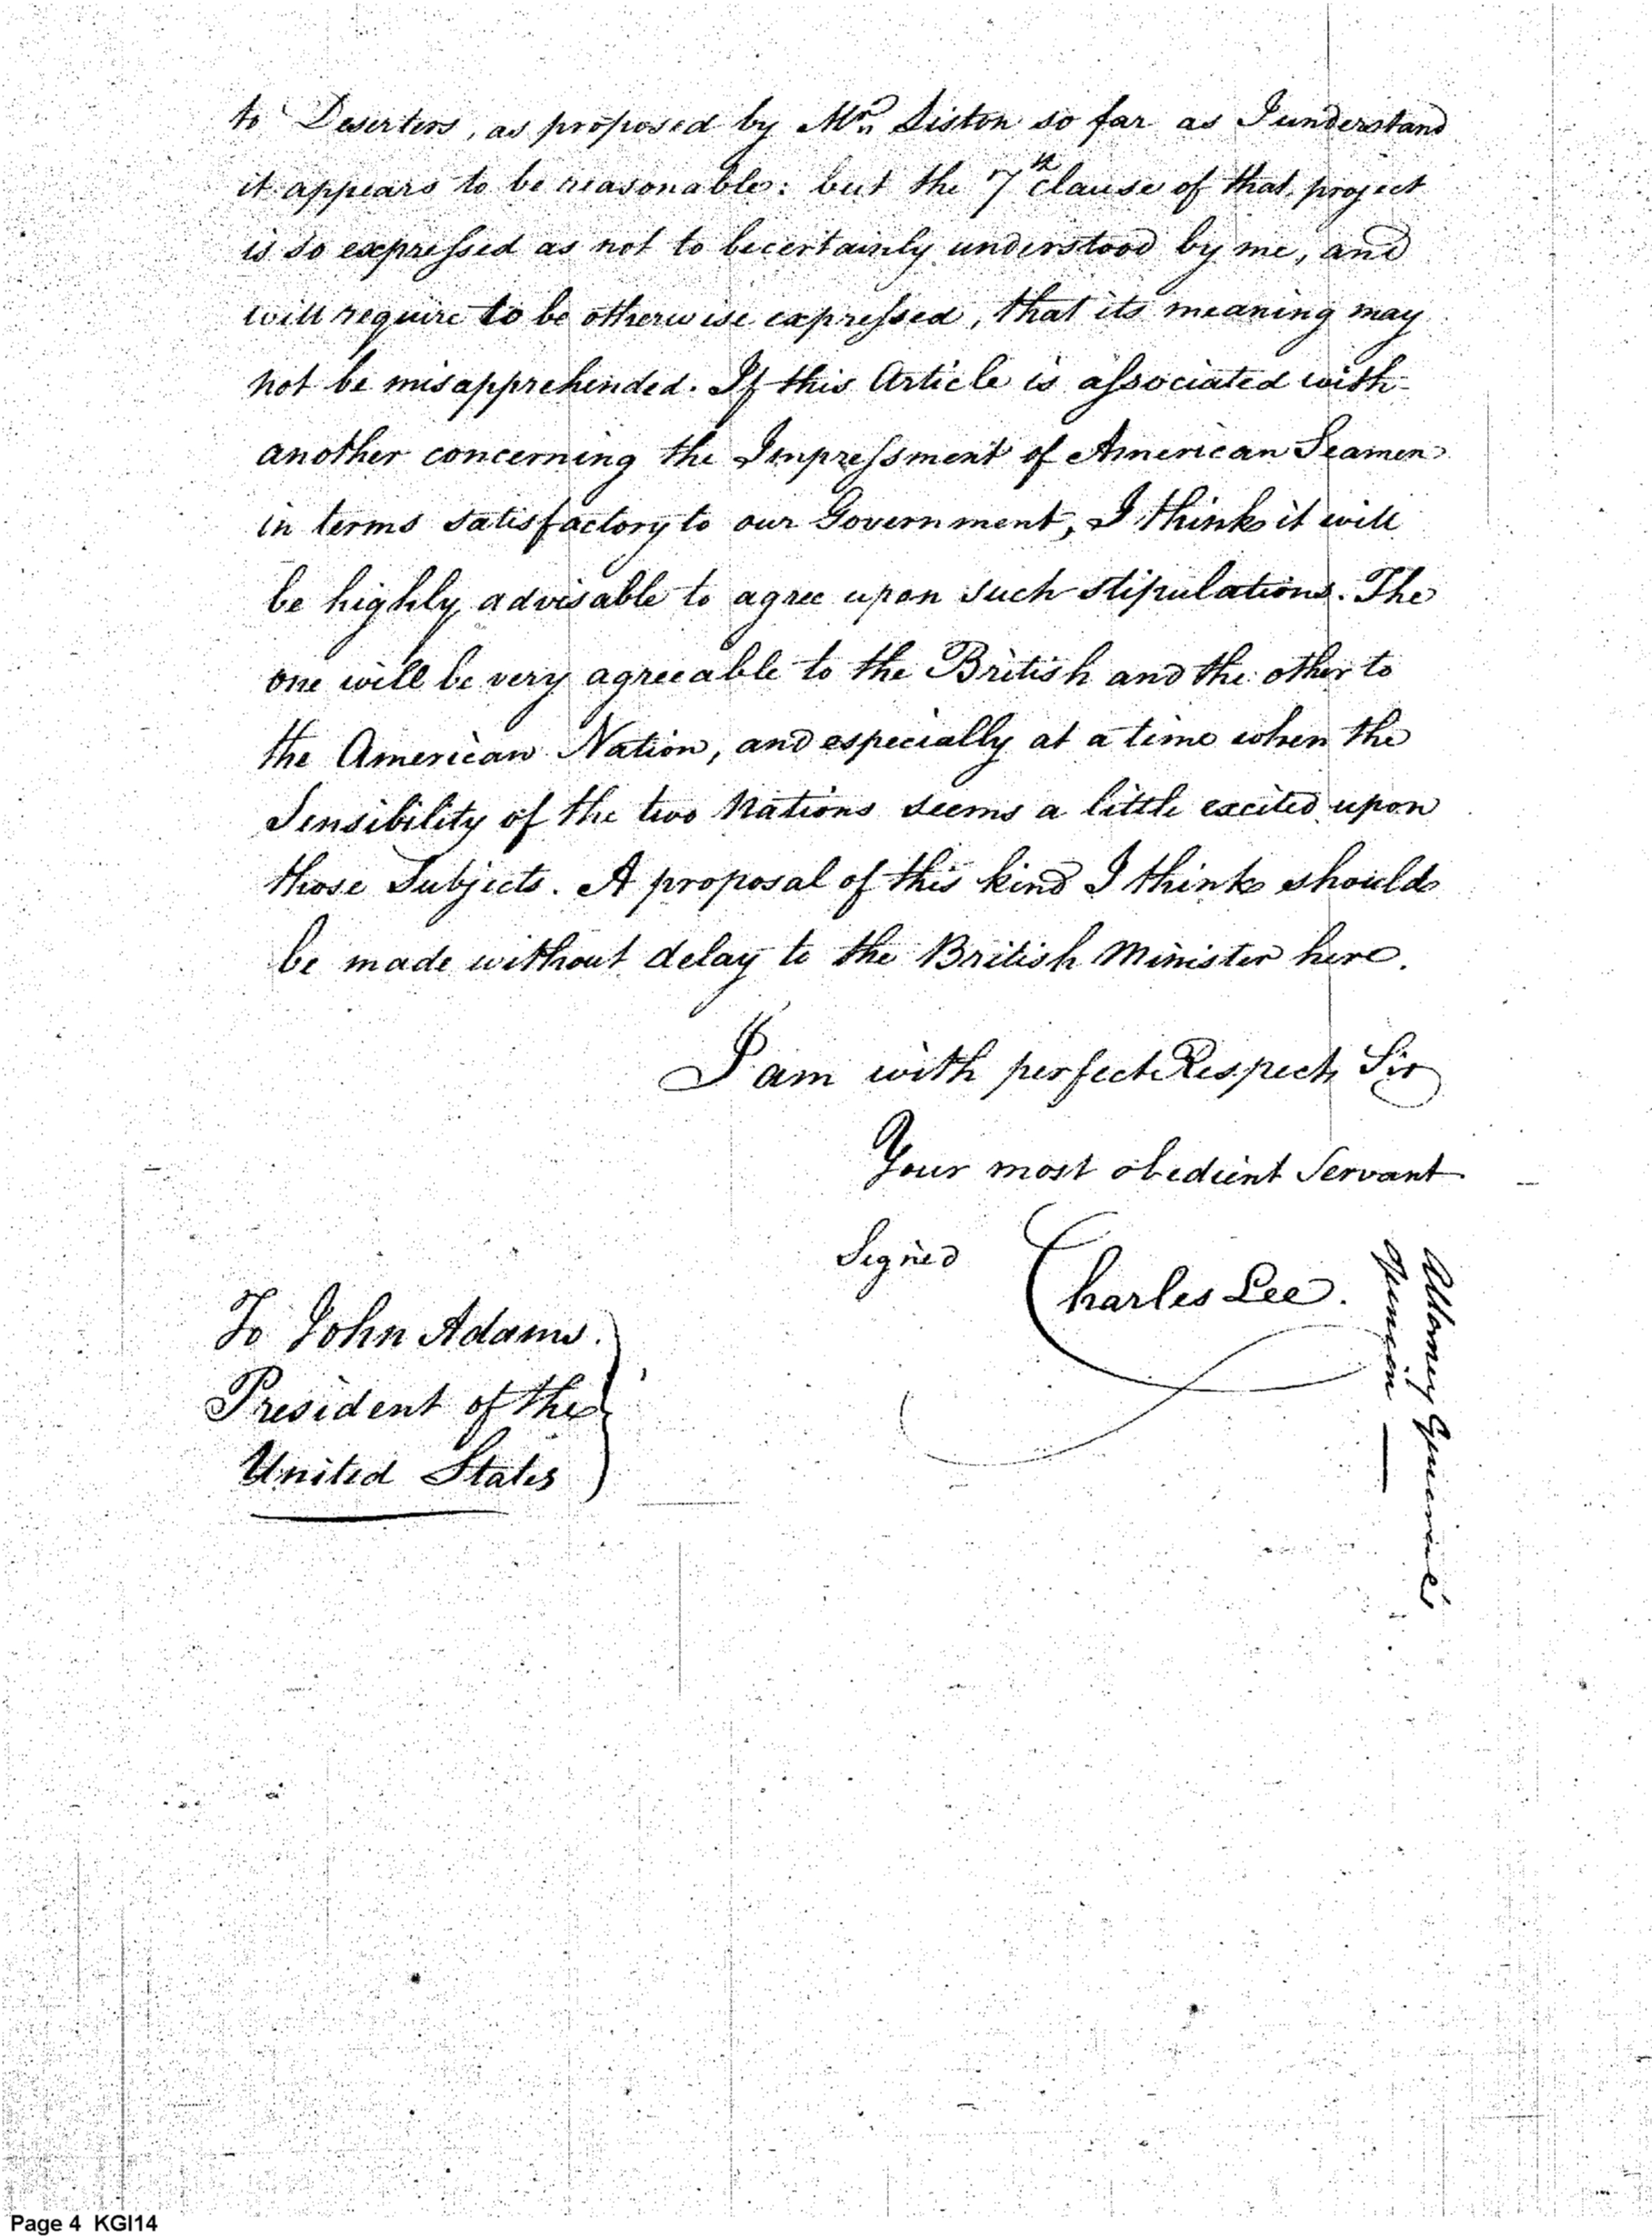 to Deserters, as proposed by Mr. Liston so far as I understand
it appears to be reasonable: but the 7th clause of that project
is so expressed as not to be certainly understood by me, and
will require to be otherwise expressed, that its meaning may
not be misapprehended. If this Article is associated with
another concerning the Impressment of American Seamen
in terms satisfactory to our Government, I think it will
be highly advisable to agree upon such stipulations. The
one will be very agreeable to the British and the other to
the American Nation, and especially at a time when the
Sensibility of the two Nations seems a little excited upon
those Subjects. A proposal of this kind I think should
be made without delay to the British Minister here.
I am with perfect Respect, Sir
Your most obedient Servant
Signed Charles Lee.
Attorney General's
Opinion —
To John Adams.
President of the
United States
Page 4 KGI14